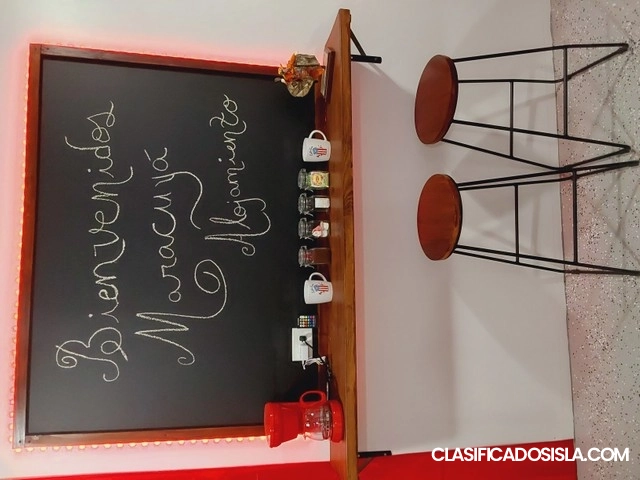 Bienvenidos
Maracuyá
Alojamiento
CLASIFICADOSISLA.COM